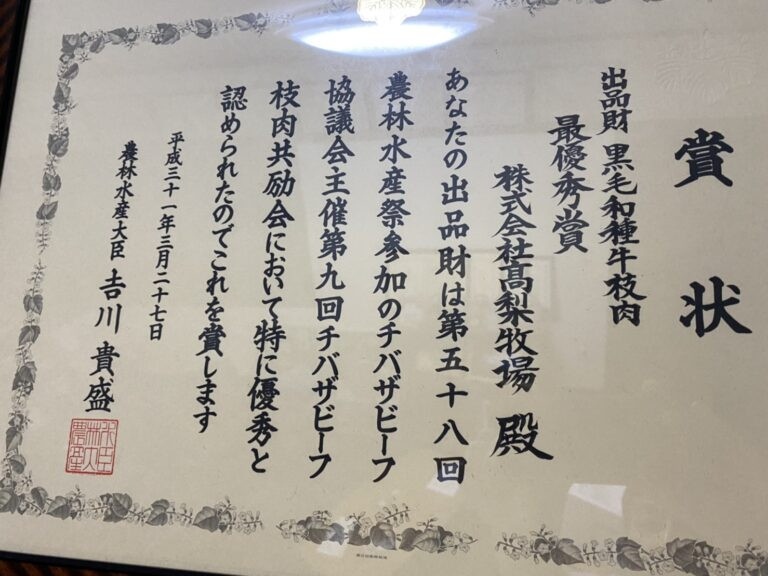 賞状
出品財 黒毛和種牛枝肉
最優秀賞
株式会社髙梨牧場 殿
あなたの出品財は第五十八回
農林水産祭参加のチバザビーフ
協議会主催第九回チバザビーフ
枝肉共励会において特に優秀と
認められたのでこれを賞します
平成三十一年三月二十七日
農林水産大臣 𠮷川貴盛